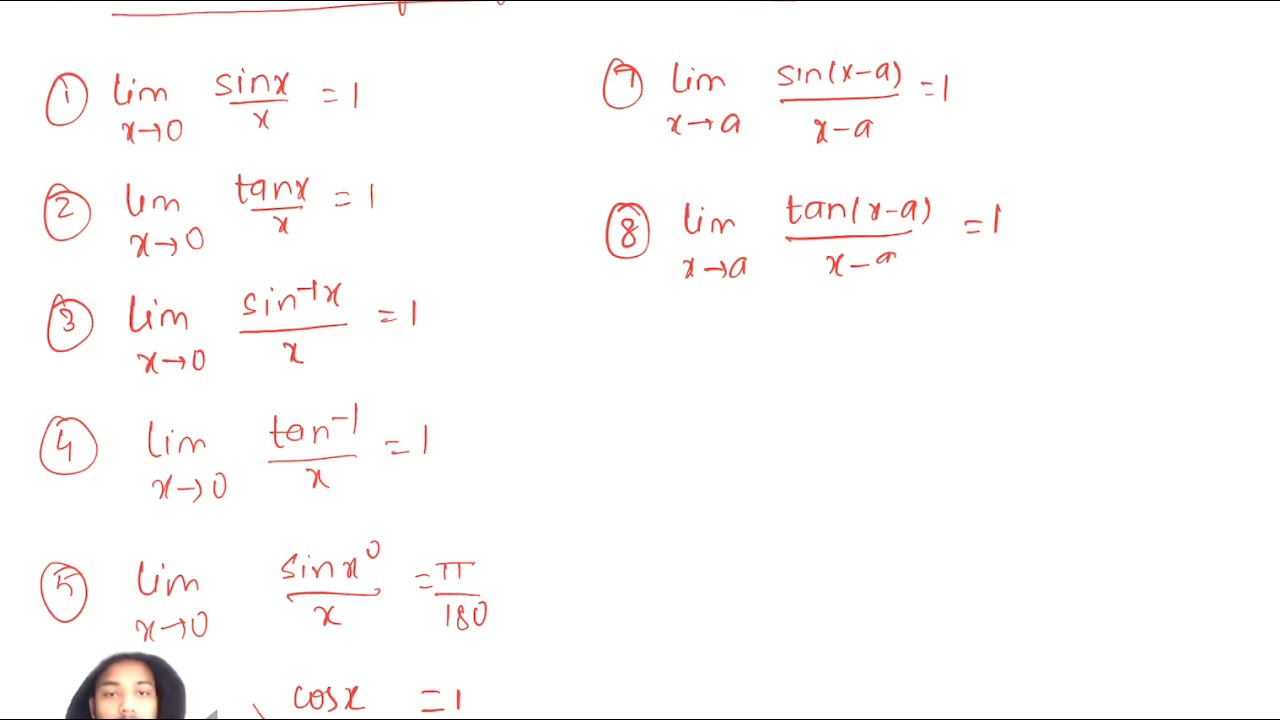 ① lim x→0 sinx/x = 1
② lim x→0 tanx/x = 1
③ lim x→0 sin⁻¹x/x = 1
④ lim x→0 tan⁻¹/x = 1
⑤ lim x→0 sinx⁰/x = π/180
cosx = 1
⑦ lim x→a sin(x-a)/x-a = 1
⑧ lim x→a tan(x-a)/x-a = 1